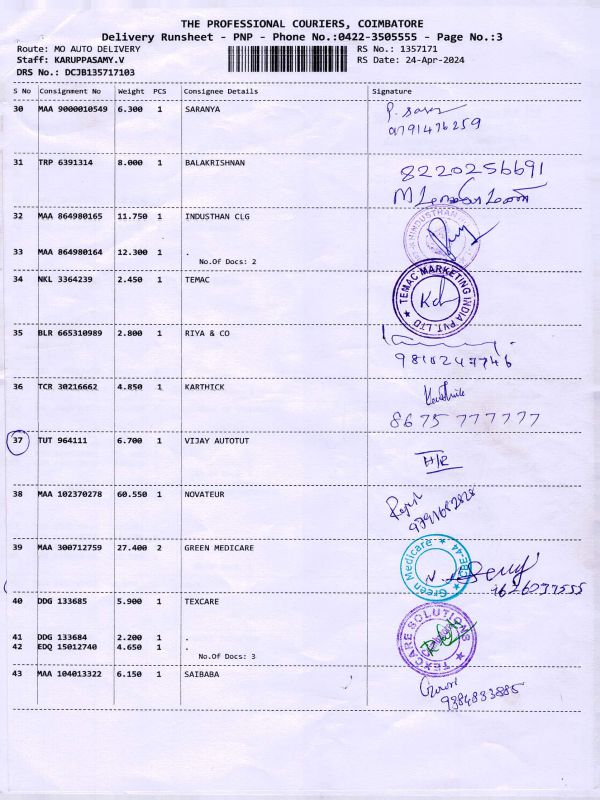 THE PROFESSIONAL COURIERS, COIMBATORE
Delivery Runsheet - PNP - Phone No.:0422-3505555 - Page No.:3
Route: MO AUTO DELIVERY RS No.: 1357171
Staff: KARUPPASAMY.V RS Date: 24-Apr-2024
DRS No.: DCJB135717103
S No Consignment No Weight PCS Consignee Details Signature
30 MAA 9000010549 6.300 1 SARANYA
9791476259
31 TRP 6391314 8.000 1 BALAKRISHNAN
8220256691
32 MAA 864980165 11.750 1 INDUSTHAN CLG
33 MAA 864980164 12.300 1 .
No.Of Docs: 2
34 NKL 3364239 2.450 1 TEMAC
TEMAC MARKETING INDIA PVT. LTD
35 BLR 665310989 2.800 1 RIYA & CO
9810247746
36 TCR 30216662 4.850 1 KARTHICK
8675 777777
37 TUT 964111 6.700 1 VIJAY AUTOTUT
H/R
38 MAA 102370278 60.550 1 NOVATEUR
9791682828
39 MAA 300712759 27.400 2 GREEN MEDICARE
Green Medicare
9626037555
40 DDG 133685 5.900 1 TEXCARE
TEXCARE SOLUTIONS
41 DDG 133684 2.200 1 .
42 EDQ 15012740 4.650 1 .
No.Of Docs: 3
43 MAA 104013322 6.150 1 SAIBABA
9384833885